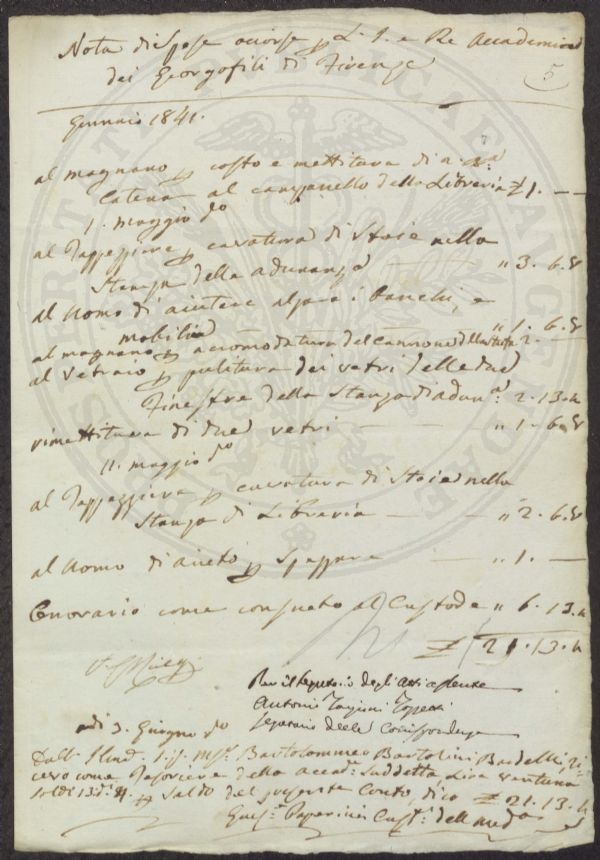 Nota di Spese occorse p L'I. e Re Accademia
dei Georgofili di Firenze
5
Gennaio 1841.
al magnano p costo e mettitura di n. 
Catena al campanello della Libreria £ 1. —
1. maggio do
al Tappezziere p cavatura di Stoie nella
Stanza della adunanza " 3. 6. 8
al Uomo di aiutare alzare i banchi, e
mobilia " 1. 6. 8
al magnano p accomodatura del cannone della stufa 2. —
al Vetraio p pulitura dei vetri delle due
Finestre della Stanza d'adunza. 2. 13. 4
rimettitura di due vetri — " 1. 6. 8
11. maggio do
al Tappezziere p cavatura di Stoie nella
Stanza di Libreria — " 2. 6. 8
al Uomo di aiuto p Spazzare — " 1. —
Onorario come consueto al Custode " 6. 13. 4
£ 21. 13. 4
Per il Segretario degli Atti assente
Antonio Targioni Tozzetti
Segretario delle Corrispondenze
adì 3. Giugno do
Dall' Illmo. Sig. Bartolommeo Bartolini Baldelli, ri=
cevo come Tesoriere della accada. Suddetta Lire ventuna
soldi 13. d. 4. p Saldo del presente Conto, dico £ 21. 13. 4
Custe. della meda.